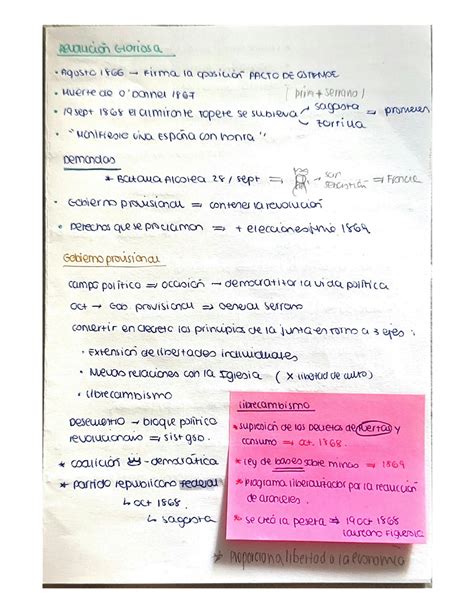 Revolución Gloriosa
• Agosto 1866 → Firma la oposición PACTO DE OSTENDE
• Muerte de O'Donnel 1867 (prim + serrano)
• 19 sept 1868 el almirante topete se subleva sagasta zorrilla ⇒
• "Manifiesto viva España con honra"
Demandas
* Batalla Alcolea 28/sept ⇒ san sebastián ⇒ Francia
• Gobierno provisional ⇒ contener la revolución
• Derechos que se proclaman ⇒ + elecciones 1869
Gobierno provisional
campo político ⇒ ocasión → democratizar la vida política
oct → Gob provisional ⇒ General Serrano
convertir en decreto los principios de la junta en torno a 3 ejes:
• Extensión de libertades individuales
• Nuevas relaciones con la Iglesia (x libertad de culto)
• librecambismo
Desencuentro → bloque político
revolucionario ⇒ sist gso.
* coalición - democrática
* partido republicano federal
↳ oct 1868
↳ sagasta
librecambismo
* supresión de los de puertas y
consumo ⇒ oct. 1868.
* ley de bases sobre minas ⇒ 1869
* programa liberalizador por la reducción
de aranceles.
* se creó la peseta ⇒ 19 oct 1868
Laureano Figuerola
* proporciona libertad a la economía